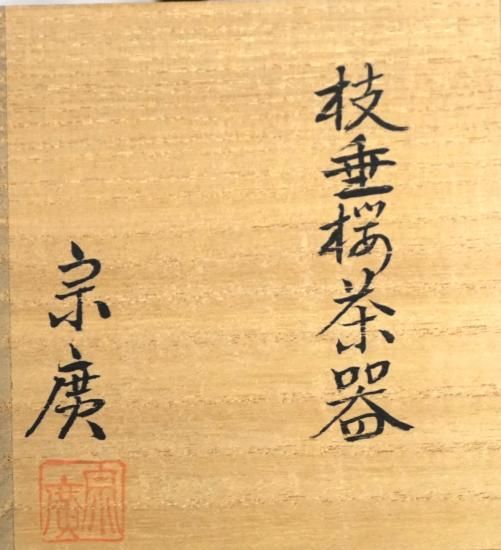 枝垂桜茶器
宗廣
宗廣